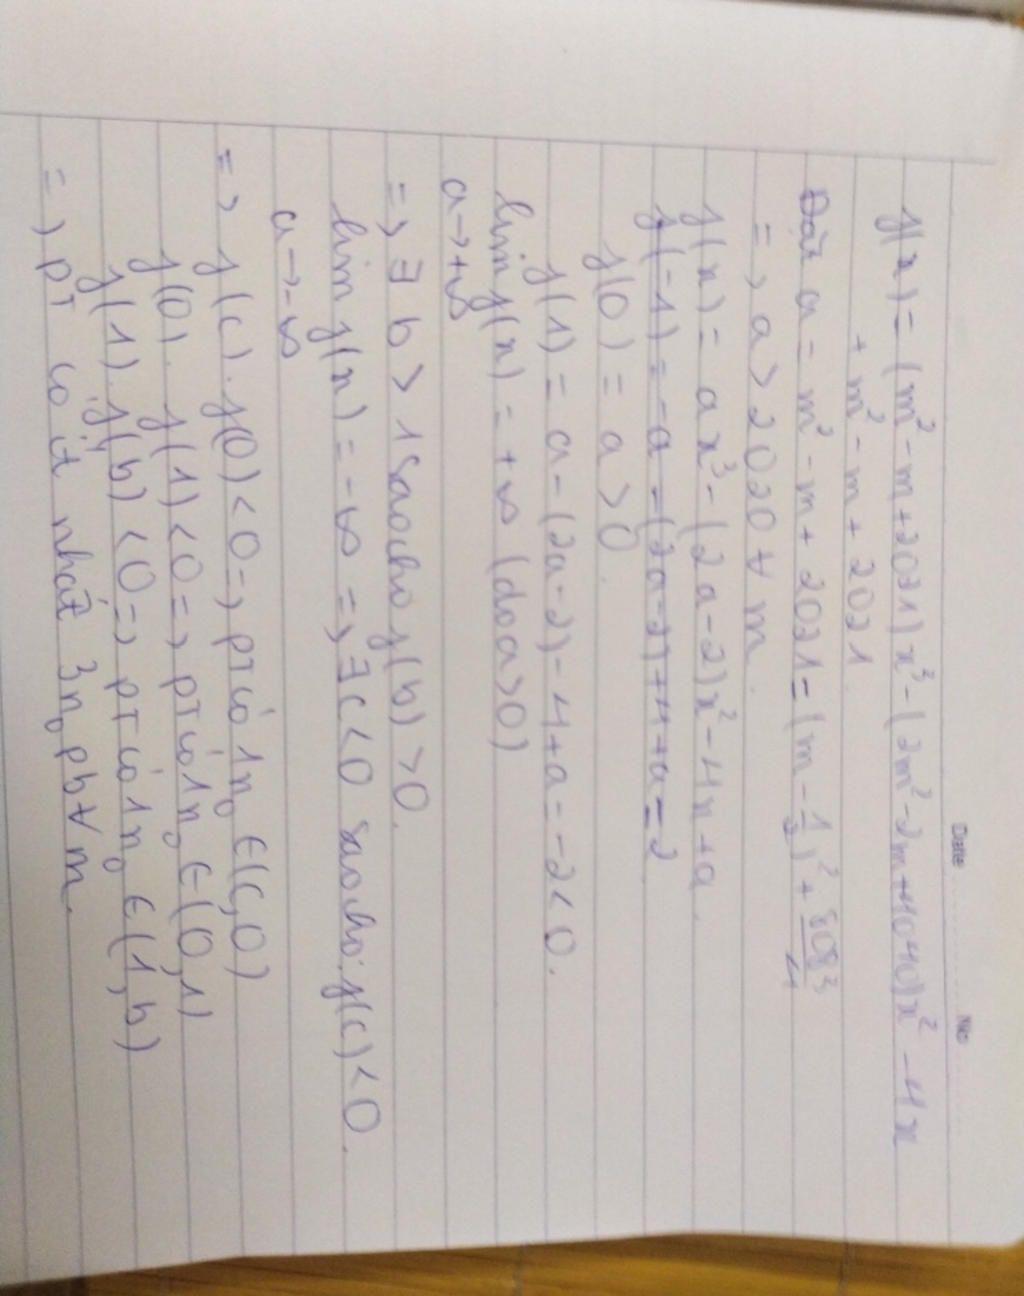 Date
No
f(x) = (m² - m + 2021)x³ - (2m² - 2m + 4040)x² - 4x
+ m² - m + 2021
Đặt a = m² - m + 2021 = (m - 1/2)² + 8083/4
=> a > 2020 ∀ m
f(x) = ax³ - (2a - 2)x² - 4x + a
f(-1) = -a = (2a-2) + 4 + a = 2
f(0) = a > 0.
f(1) = a - (2a - 2) - 4 + a = -2 < 0.
lim f(x) = +∞ (do a > 0)
a → +∞
=> ∃ b > 1 sao cho f(b) > 0.
lim f(x) = -∞ => ∃ c < 0 sao cho: f(c) < 0.
a → -∞
=> f(c).f(0) < 0 => PT có 1 no ∈ (c, 0)
f(0). f(1) < 0 => PT có 1 no ∈ (0, 1)
f(1). f(b) < 0 => PT có 1 no ∈ (1, b)
=> PT có ít nhất 3 no pb ∀ m.